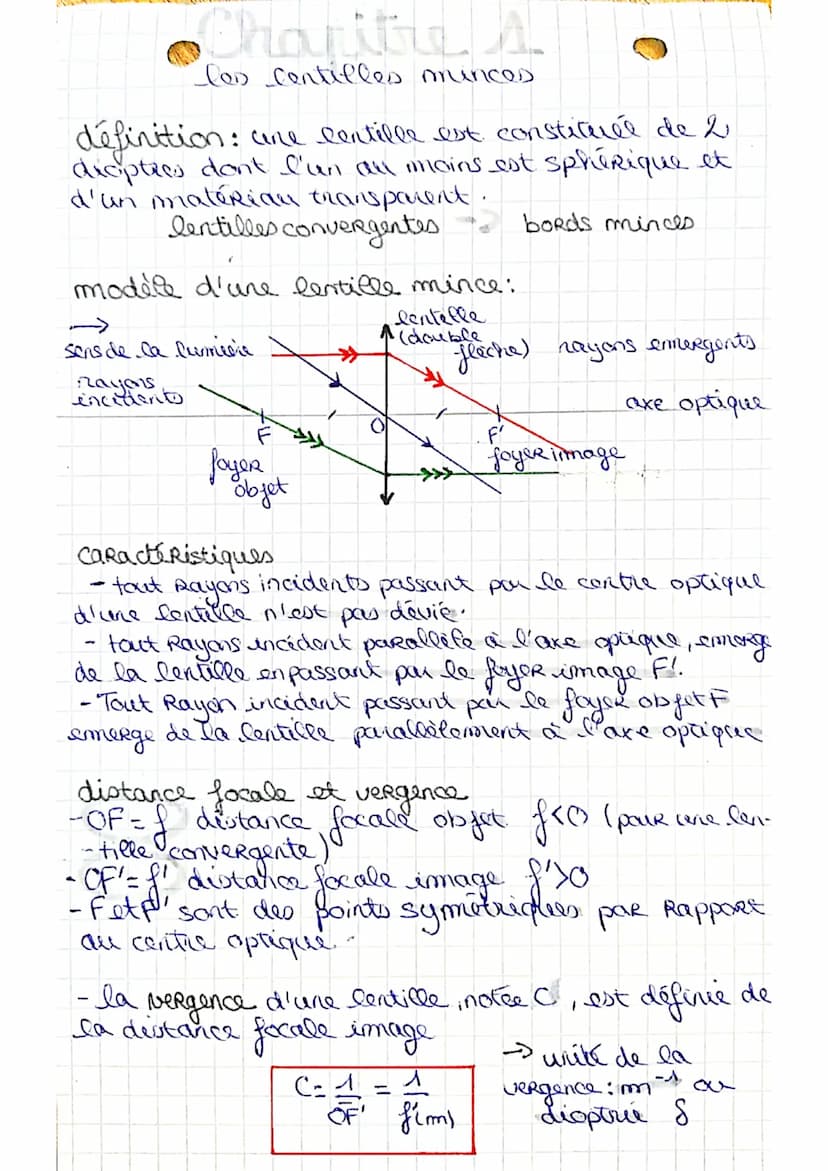 Chapitre 1
les lentilles minces
définition: une lentille est constituée de 2
dioptres dont l'un au moins est sphérique et
d'un matériau transparent.
lentilles convergentes -> bords minces
modèle d'une lentille mince:
->
lentille
(double
flèche)
sens de la lumière
rayons emergents
rayons
incidents
axe optique
F
O
F'
foyer
objet
foyer image
caractéristiques
- tout Rayons incidents passant par le centre optique
d'une lentille n'est pas dévié.
- tout Rayons incident parallèle à l'axe optique, émerge
de la lentille en passant par le foyer image F'.
- Tout Rayon incident passant par le foyer objet F
emerge de la lentille parallèlement à l'axe optique
distance focale et vergence
- OF = f distance focale objet f<0 (pour une len-
-tille convergente)
- OF' = f' distance focale image f'>0
- F et F' sont des points symétriques par Rapport
au centre optique.
- la vergence d'une lentille, notée C, est définie de
la distance focale image
-> unité de la
vergence : m⁻¹ ou
dioptrie δ
C = 1/OF' = 1/f'(m)